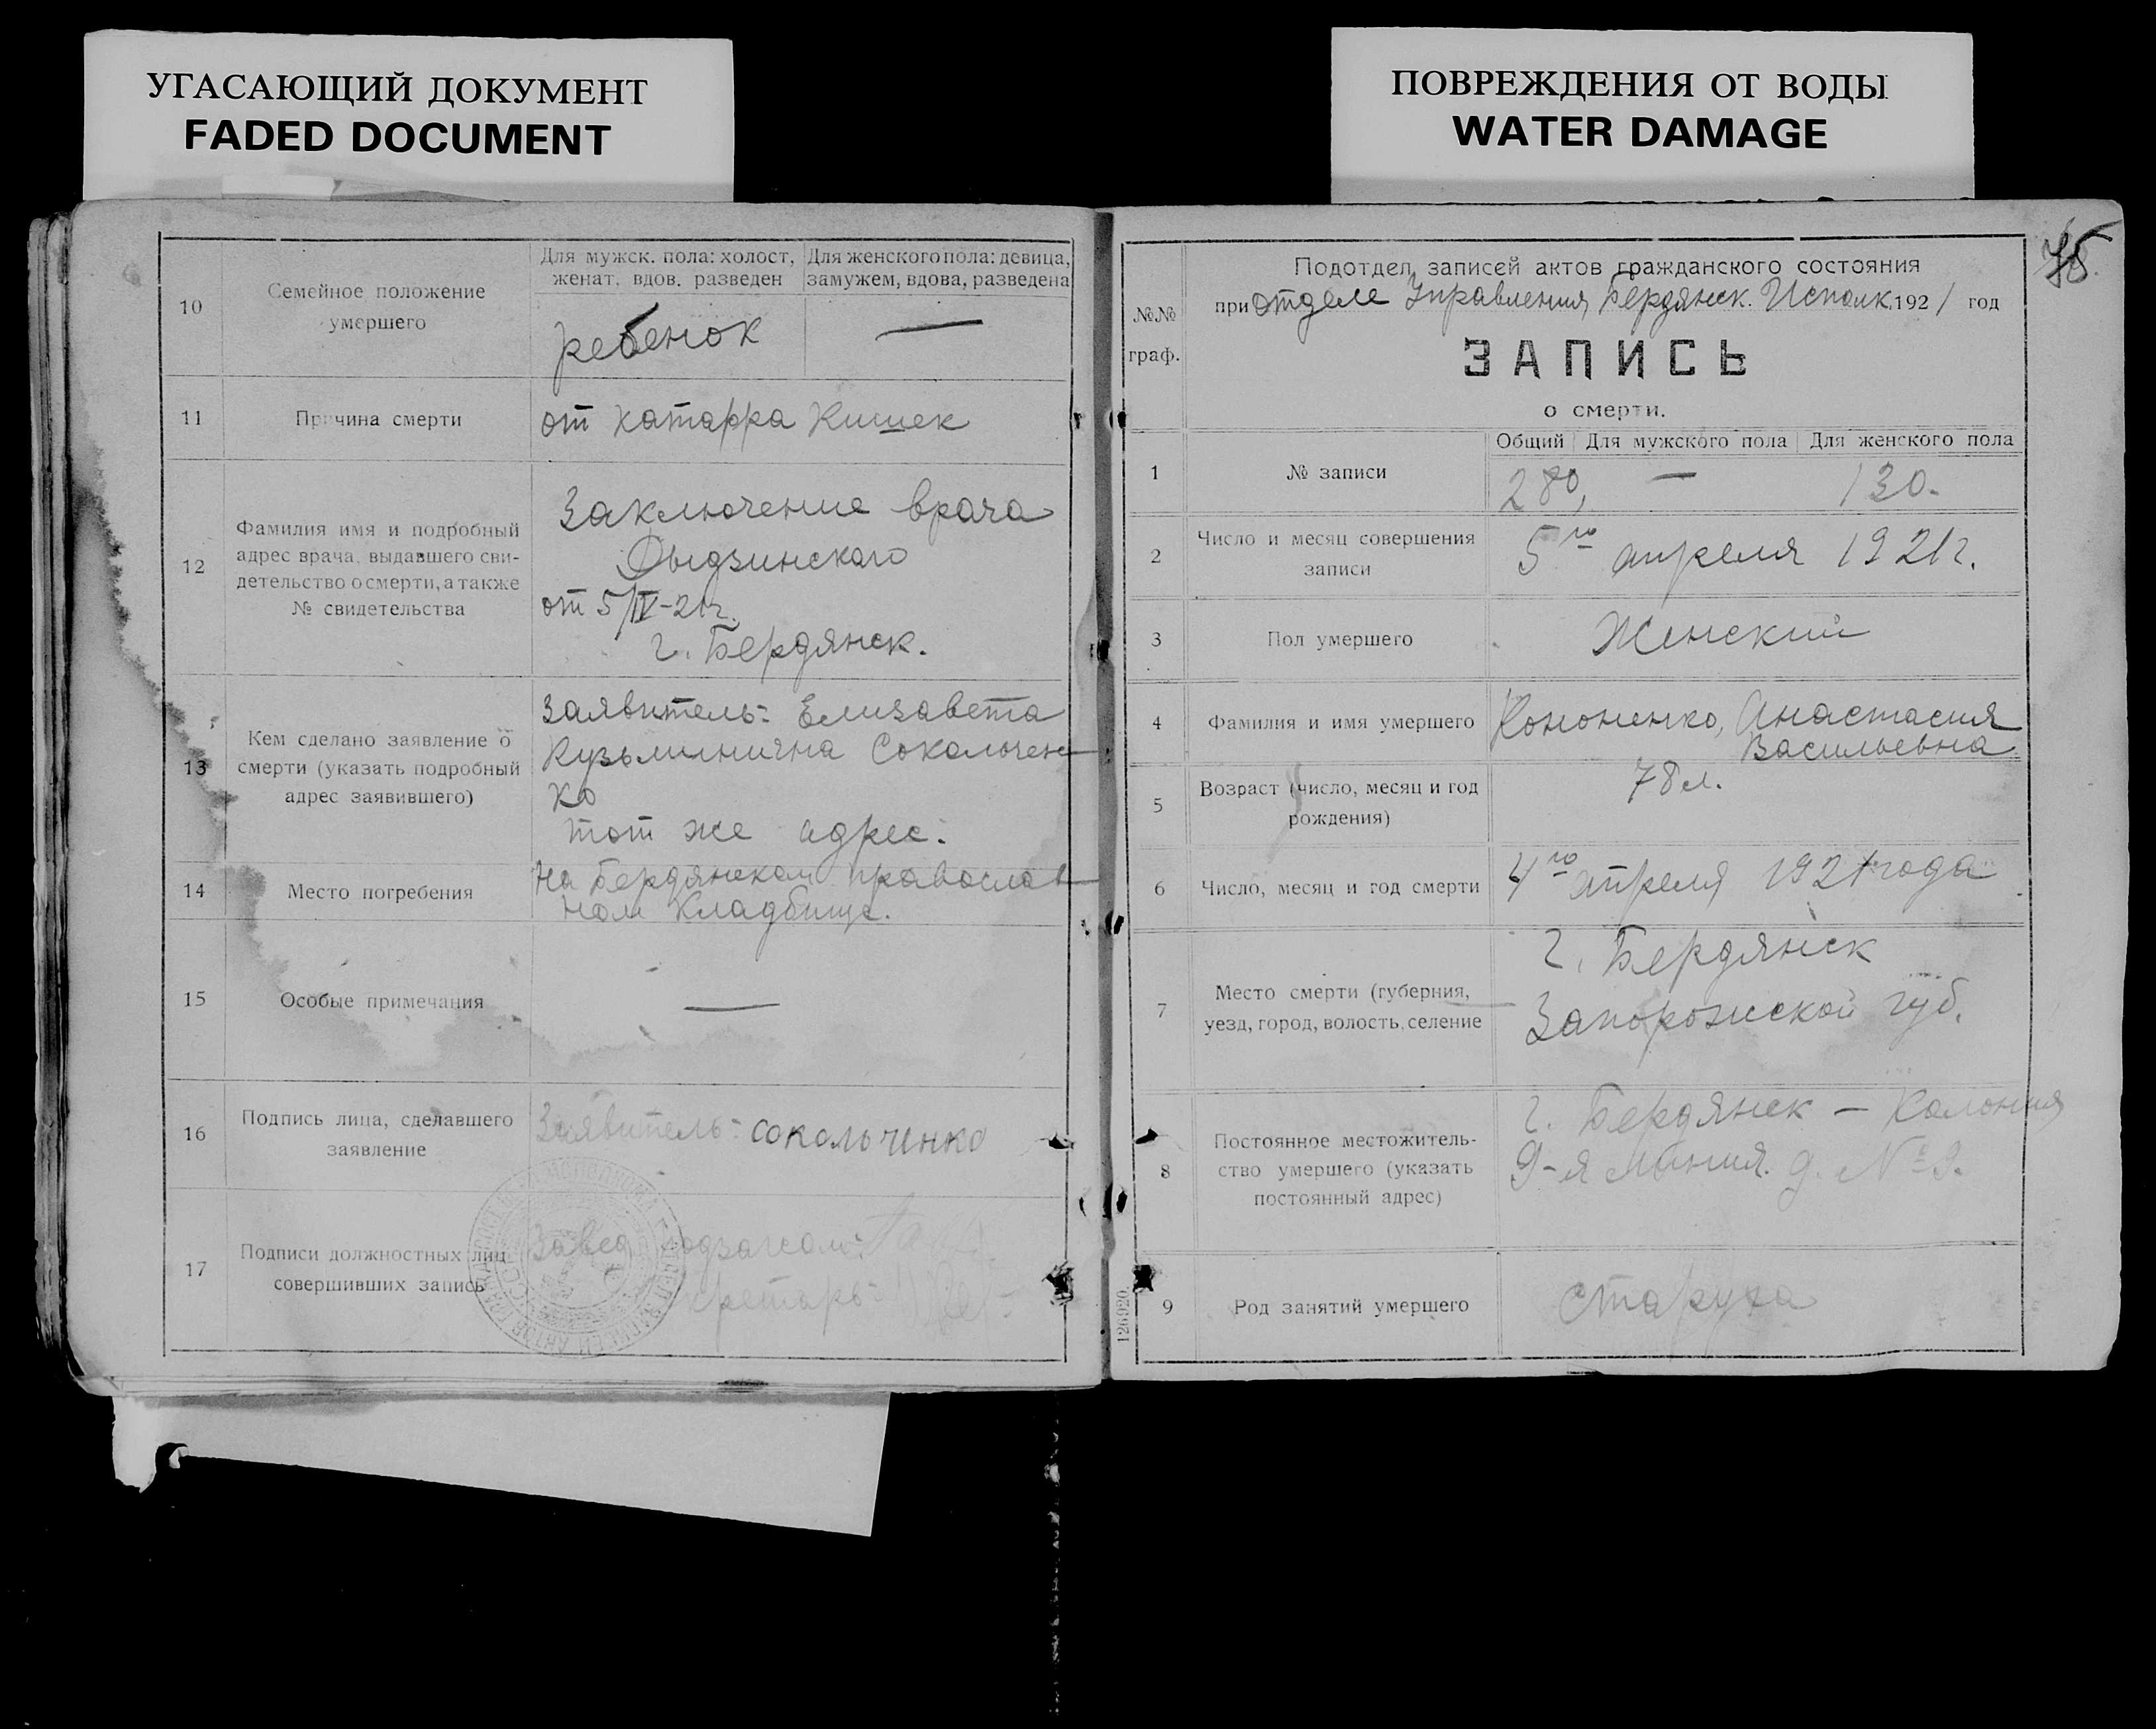 УГАСАЮЩИЙ ДОКУМЕНТ
FADED DOCUMENT
ПОВРЕЖДЕНИЯ ОТ ВОДЫ
WATER DAMAGE
10
Семейное положение
умершего
Для мужск. пола: холост,
женат, вдов. разведен
Для женского пола: девица,
замужем, вдова, разведена
ребенок —
11
Причина смерти
от катарра Кишек
12
Фамилия имя и подробный
адрес врача, выдавшего сви-
детельство о смерти, а также
№ свидетельства
Заключение врача
Дыдзинского
от 5/IV-21г.
г. Бердянск.
13
Кем сделано заявление о
смерти (указать подробный
адрес заявившего)
Заявитель: Елизавета
Кузьминична Сокольчен-
ко
тот же адрес.
14
Место погребения
На Бердянском православ-
ном Кладбище.
15
Особые примечания
—
16
Подпись лица, сделавшего
заявление
Заявитель: сокольченко
17
Подписи должностных лиц
совершивших запись
Завед. подзагсом:
75
№№
граф.
Подотдел записей актов гражданского состояния
при Отделе Управления Бердянск. Исполк. 1921 год
ЗАПИСЬ
о смерти.
1
№ записи
Общий Для мужского пола Для женского пола
280, — 130.
2
Число и месяц совершения
записи
5го апреля 1921г.
3
Пол умершего
Женский
4
Фамилия и имя умершего
Кононенко, Анастасия
Васильевна
5
Возраст (число, месяц и год
рождения)
78 л.
6
Число, месяц и год смерти
4го апреля 1921 года
7
Место смерти (губерния,
уезд, город, волость, селение
г. Бердянск
Запорожской губ.
8
Постоянное местожитель-
ство умершего (указать
постоянный адрес)
г. Бердянск – Колония
9-я линия. д. №
9
Род занятий умершего
старуха
126920